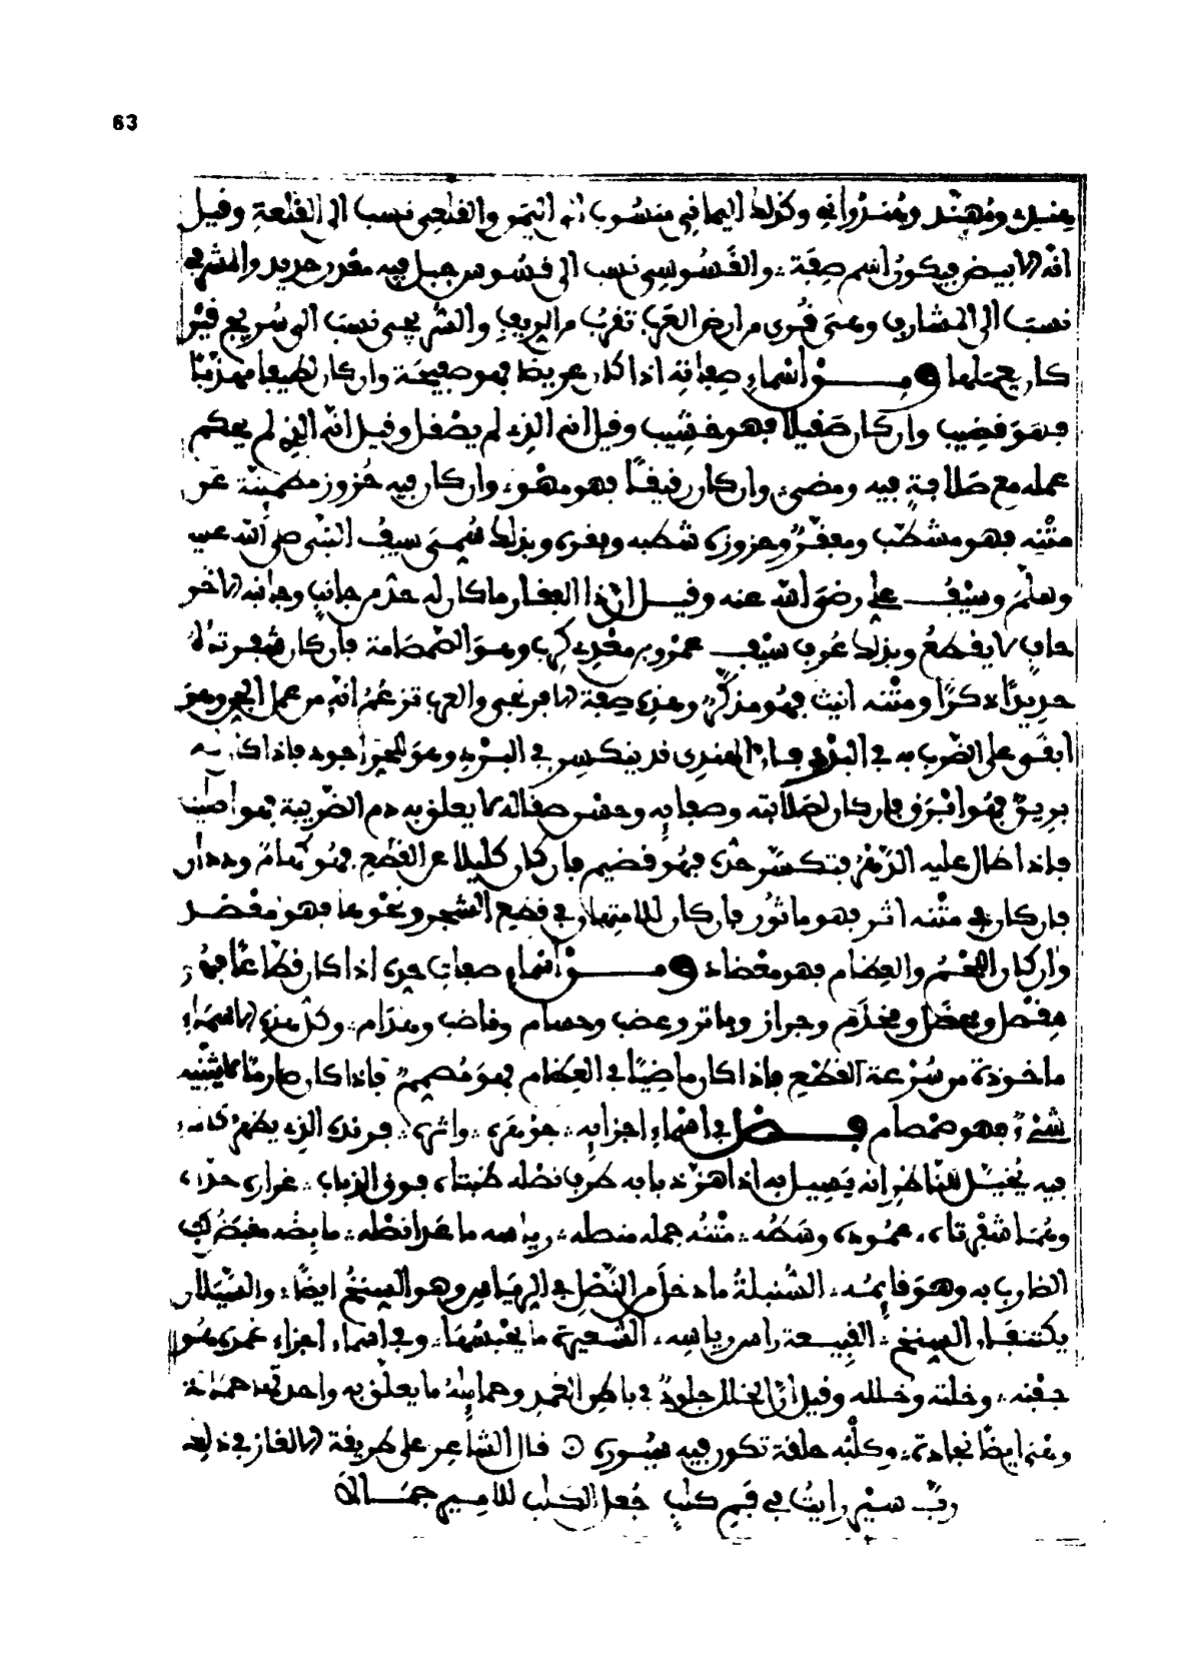 63
ومهند وهندواني وكذلك اليماني منسوب الى اليمن والقلعي نسب الى القلعة وقيل
انه الابيض فيكون اسم صفة والقسوسي نسب الى قسوس جبل فيه معدن حديد والمشرفي
نسب الى المشارف وهي قرى من ارض العرب تقرب من الريف والسريجي نسب الى سريج قين
كان يعملها ومن اسماء صفاته اذا كان عريضا فهو صفيحة وان كان لطيفا مهذبا
فهو قضيب وان كان صقيلا فهو خشيب وقيل انه الذي لم يصقل وقيل انه الذي لم يحكم
عمله مع صلابة فيه ومضي وان كان رقيقا فهو مهو وان كان فيه حزوز مطمئنة عن
متنه فهو مشطب ومفقر وحزوزه شطبه وفقره وبذلك سمي سيف النبي صلى الله عليه
وسلم وسيف علي رضي الله عنه وقيل ان ذا الفقار ما كان له حد من جانب وجانبه الاخر
جاف لا يقطع وبذلك عرف سيف عمرو بن معدي كرب وهو الصمصامة فان كان شفرتاه
حديدا ذكرا ومتنه انيث فهو مذكر وهذه صفة الافرنجي والعرب تزعم انه من عمل الجن وهو
ابقى على الضرب به في البرد الهندي قد ينكسر في البرد وهو للحز اجود فاذا كان له
بريق فهو ابريق فان كان لصلابته وصفايه وحسن صقاله لا يعلق به دم الضريبة فهو
فاذا طال عليه الزمن فتكسر حده فهو قضيم فان كان كليلا عن القطع فهو كهام وددان
فان كان في متنه اثر فهو ماثور فان كان للامتهان في قطع الشجر ونحوها فهو معضد
وان كان اللحم والعظام فهو معضاد ومن اسماء صفات حده اذا كان قطاعا فهو
مفصل ومخذم وجراز وباتر وعضب وحسام وقاضب وهذام وكل هذه الاسماء
ماخوذة من سرعة القطع فاذا كان ماضيا في العظام فهو مصمم فاذا كان صارما لا يثنيه
شيء فهو صمصام فصل في اسماء اجزايه جوهره واثره فرنده الذي يظهر
فيه يخيل للناظر انه يسيل به اذا هز ذبابه طرف نصله ظبتاه فوق الذباب غراره حده
وهما شفرتاه عموده وسطه متنه جملة رياسه ما عدا نصله مقبضه مقبض كف
الضارب به وهو قايمه السنبلة ما دخل من النصل في الرياس وهو السنخ ايضا والسيلان
يكتنفا السنخ القبيعة راس رياسه الشعيرة ما وفي اسماء اجزاء غمده هو
جفنه وخلته وخلله وقيل ان الخلل جلود في باطن الغمد وحمايله ما يعلق به واحدتها حمالة
وهي ايضا نجاده وكلبه حلقة تكون فيه سيوره قال الشاعر على طريقة الالغاز في ذلك
رب سير رايت في فم كلب جعل الكلب للامير جمالا